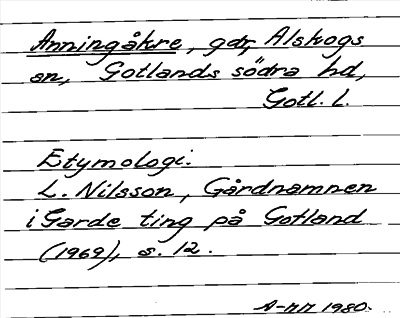 Anningåkre, gdr, Alskogs
sn, Gotlands södra hd,
Gotl. l.
Etymologi:
L. Nilsson, Gårdnamnen
i Garde ting på Gotland
(1969), s. 12.
A-NN 1980.